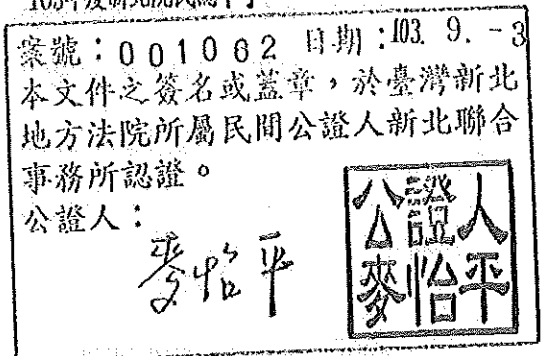 案號：001062 日期：103. 9. -3
本文件之簽名或蓋章，於臺灣新北
地方法院所屬民間公證人新北聯合
事務所認證。
公證人：
麥怡平
公證人
麥怡平